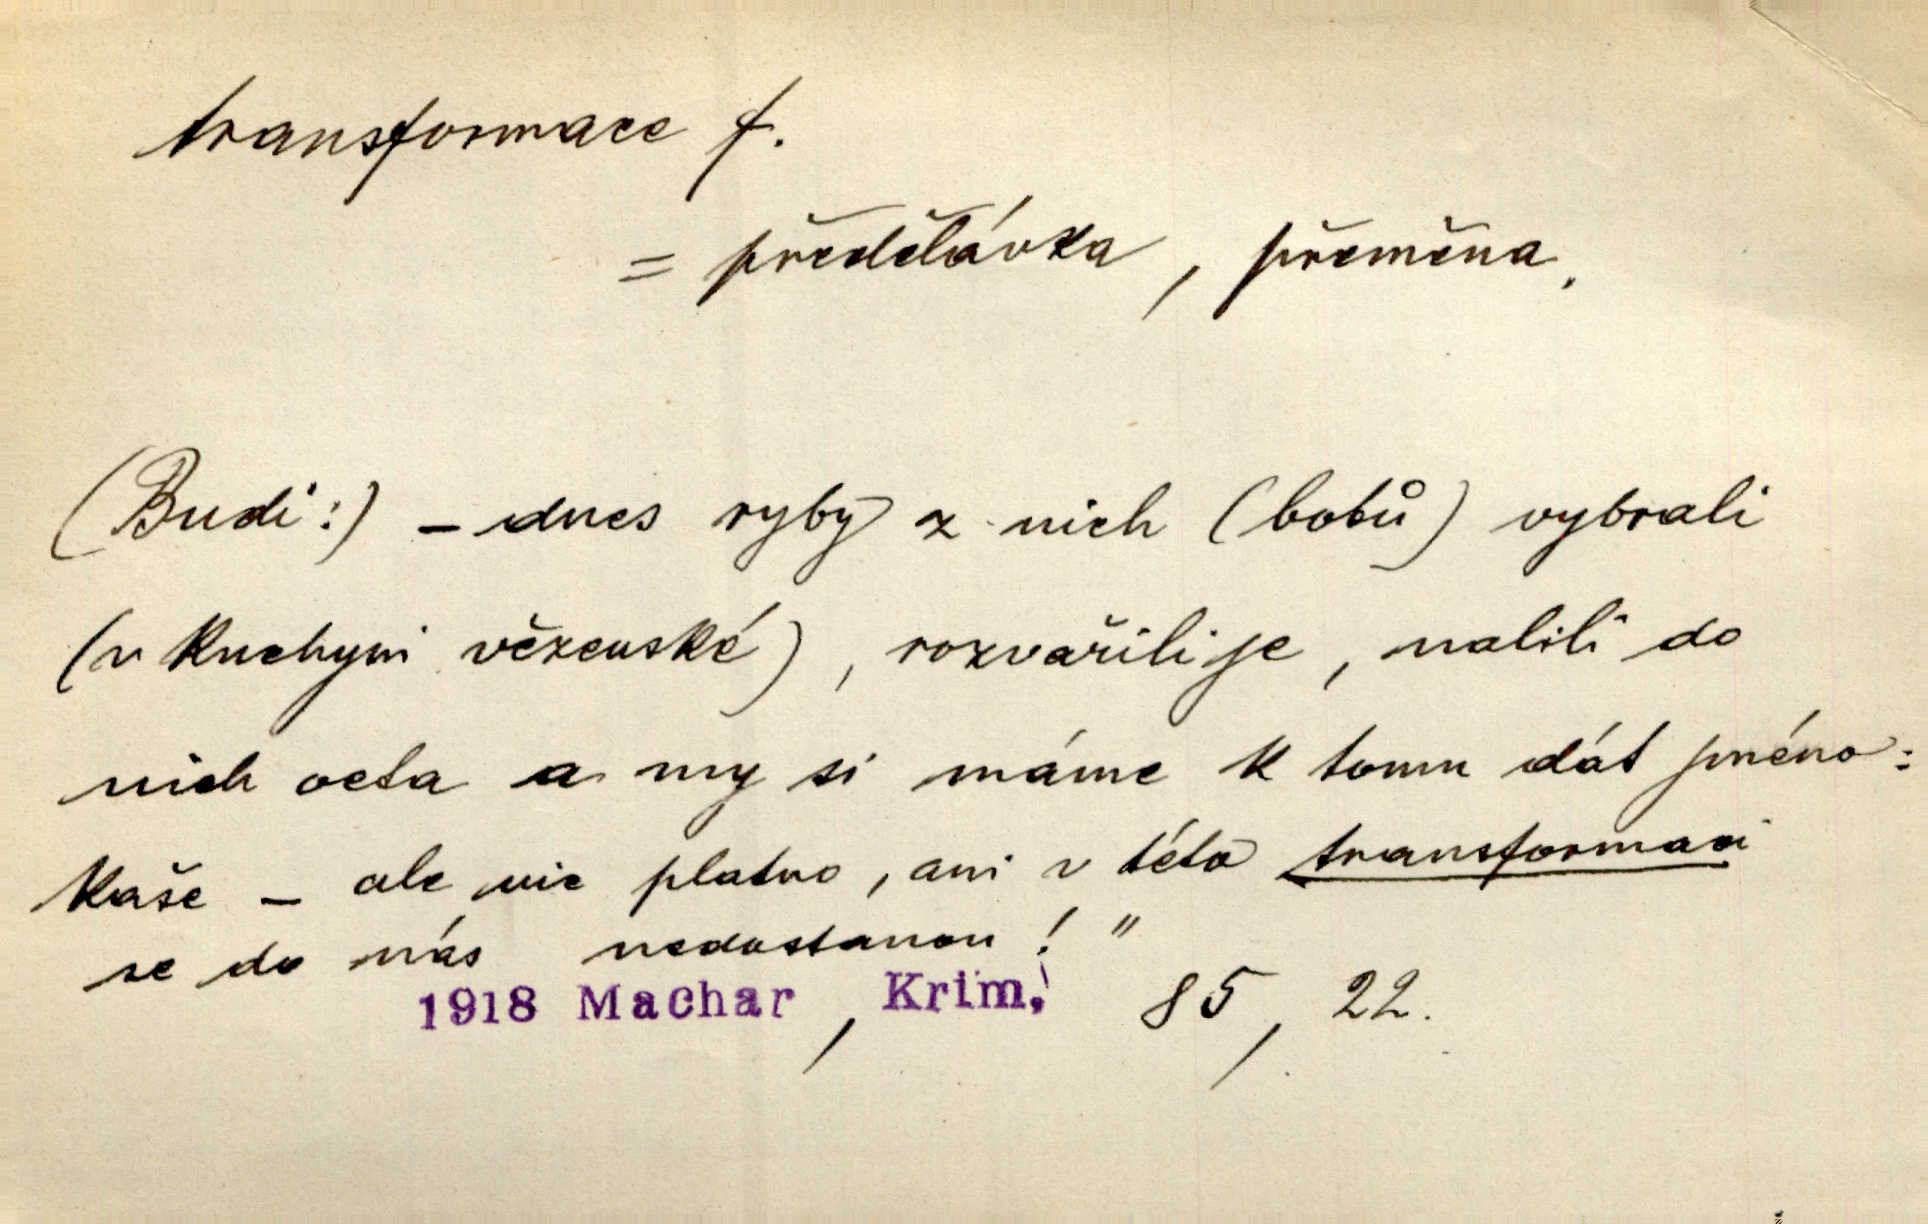 transformace f.
= předělávka, přeměna.
(Budi:) – dnes ryby z nich (bobů) vybrali
(v kuchyni vězenské), rozvařili je, nalili do
nich octa a my si máme k tomu dát jméno:
kaše – ale nic platno, ani v této transformaci
se do nás nedostanou! "
1918 Machar, Krim. 85, 22.